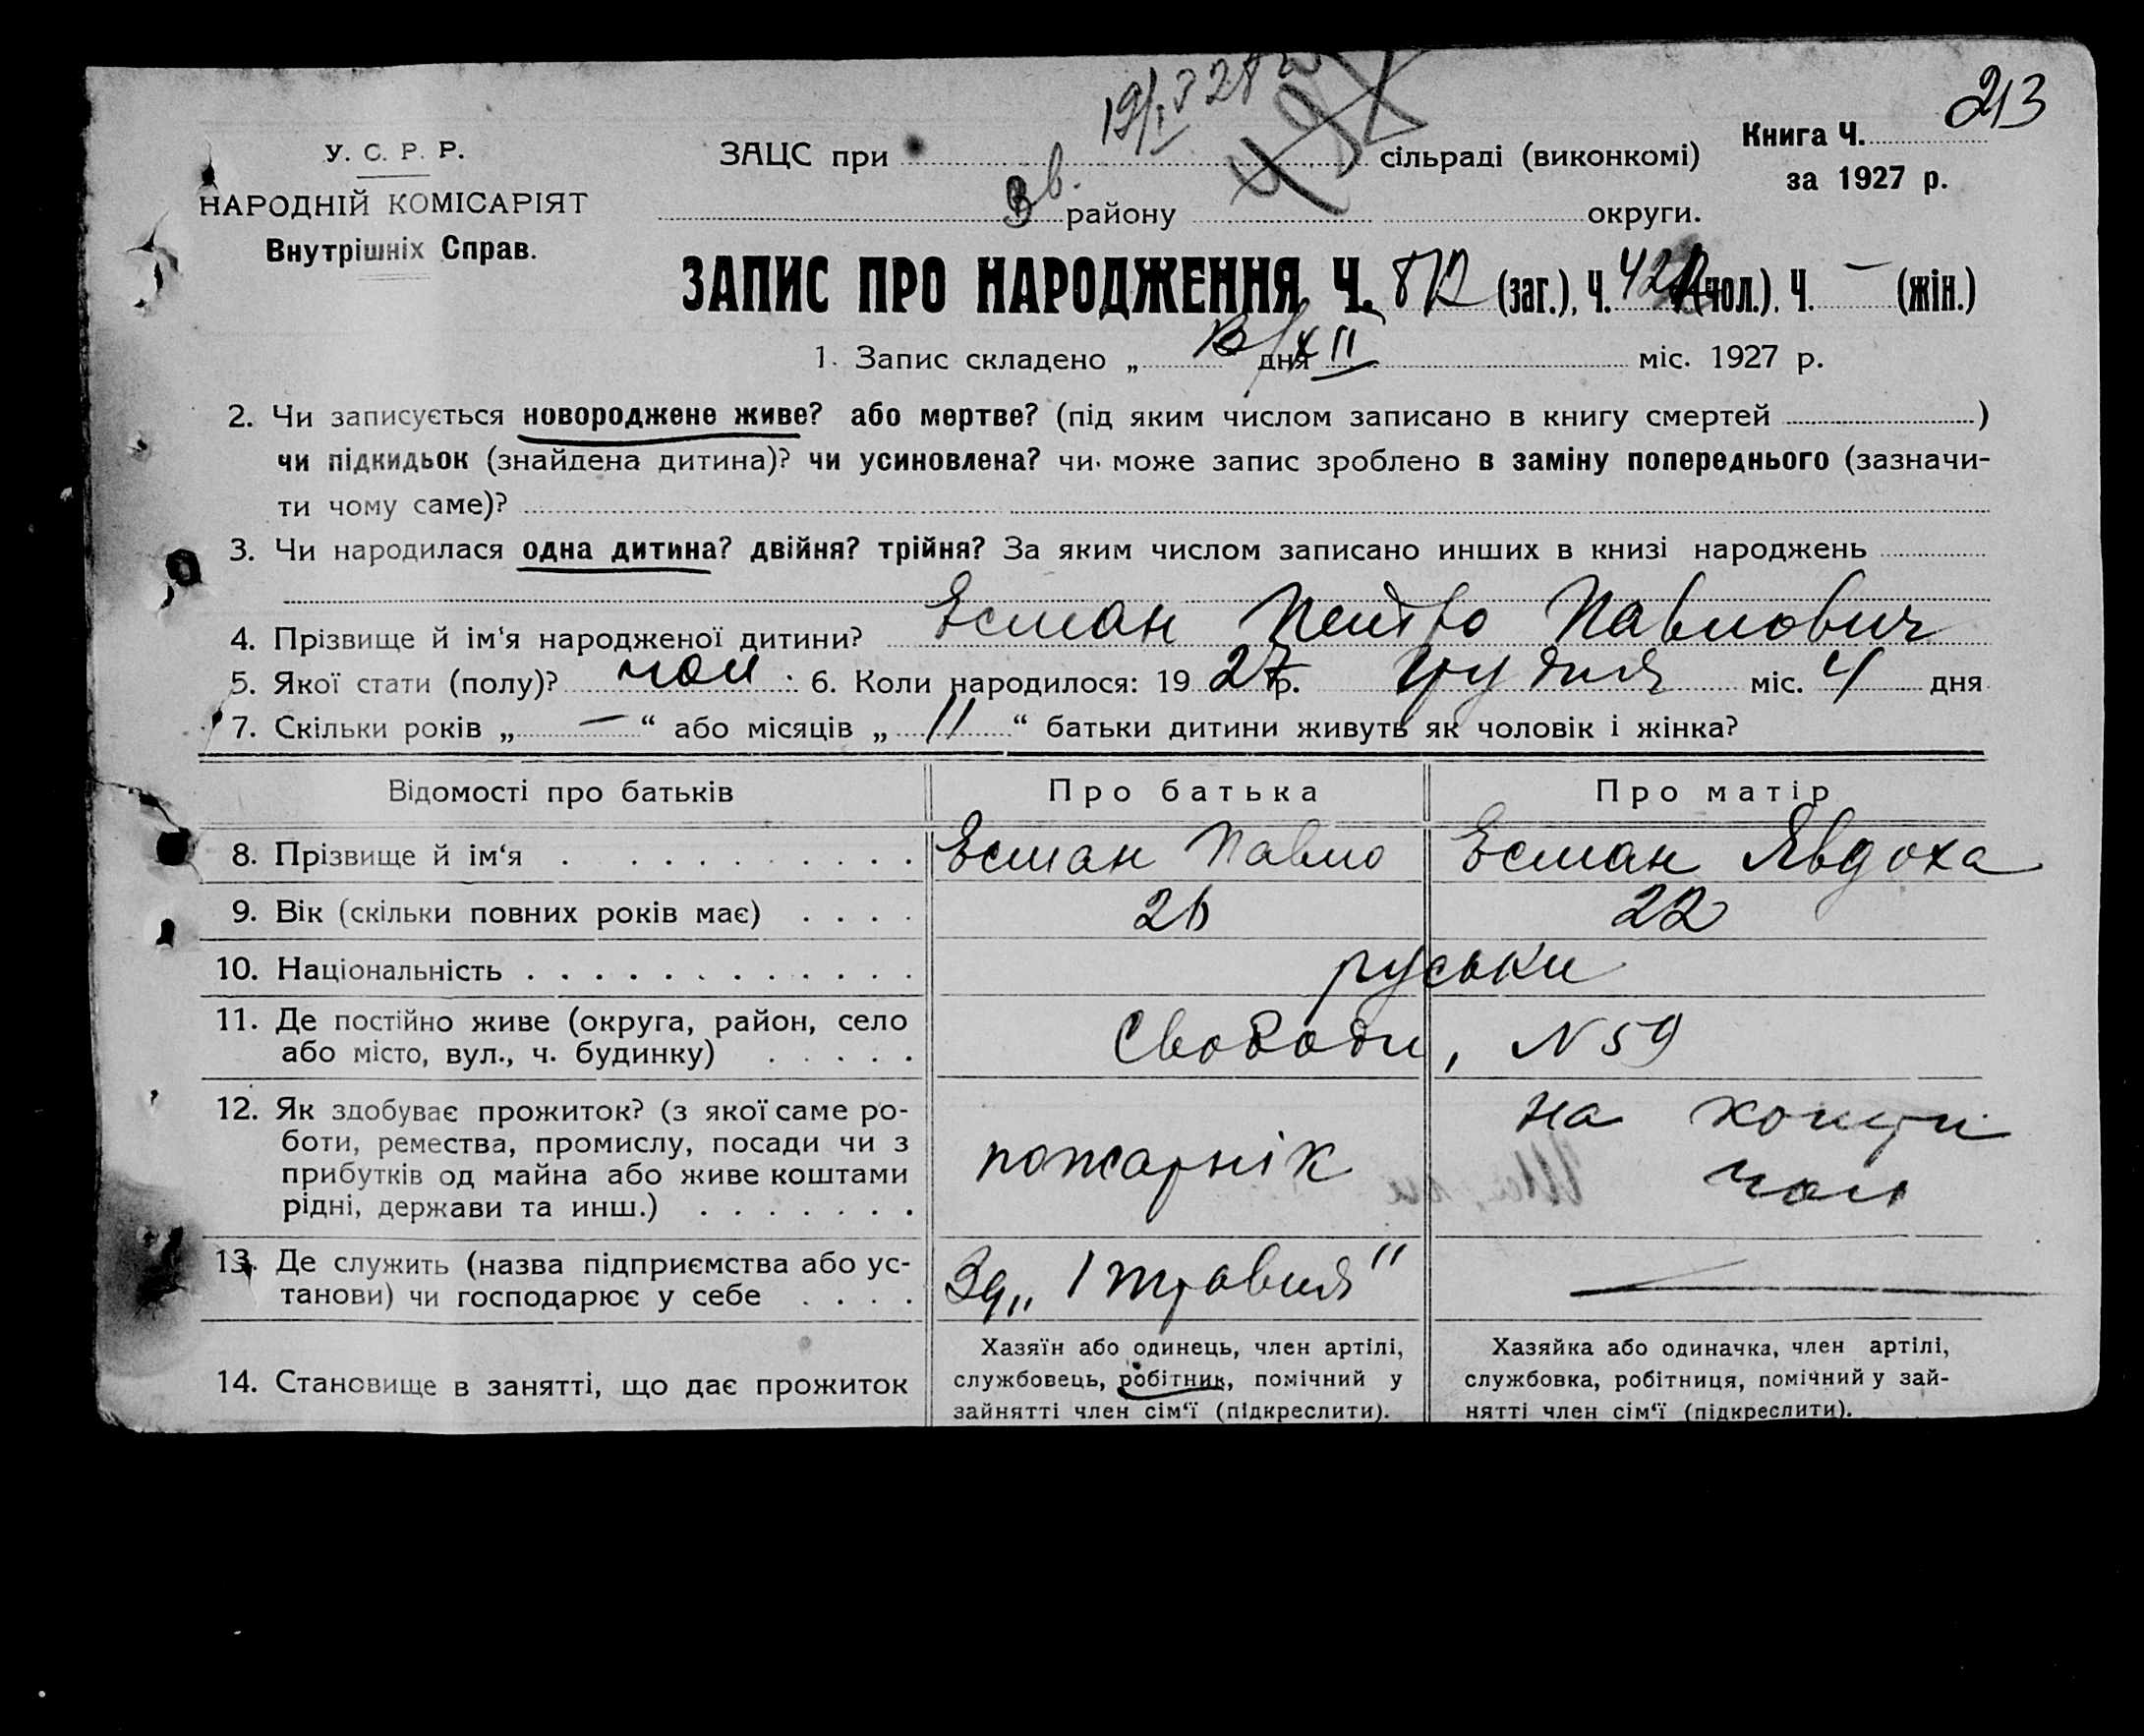 213
У. С. Р. Р.
НАРОДНІЙ КОМІСАРІЯТ
Внутрішніх Справ.
ЗАЦС при сільраді (виконкомі)
Книга Ч.
за 1927 р.
3 в. району округи.
ЗАПИС ПРО НАРОДЖЕННЯ Ч. 872 (заг.), Ч. 422 (чол.). Ч. – (жін.)
1. Запис складено „ дня XII міс. 1927 р.
2. Чи записується новороджене живе? або мертве? (під яким числом записано в книгу смертей )
чи підкидьок (знайдена дитина)? чи усиновлена? чи може запис зроблено в заміну попереднього (зазначи-
ти чому саме)?
3. Чи народилася одна дитина? двійня? трійня? За яким числом записано инших в книзі народжень
4. Прізвище й ім‘я народженої дитини? Есман Петро Павлович
5. Якої стати (полу)? чол. 6. Коли народилося: 1927 р. грудня міс. 4 дня
7. Скільки років „ — “ або місяців „ 11 “ батьки дитини живуть як чоловік і жінка?
Відомості про батьків Про батька Про матір
8. Прізвище й ім‘я Есман Павло Есман Явдоха
9. Вік (скільки повних років має) 26 22
10. Національність руськи
11. Де постійно живе (округа, район, село
або місто, вул., ч. будинку) Свободи, N 59
12. Як здобуває прожиток? (з якої саме ро-
боти, ремества, промислу, посади чи з
прибутків од майна або живе коштами
рідні, держави та инш.)
пожарнік
на кошти
чол
13. Де служить (назва підприємства або ус-
танови) чи господарює у себе
Зд „1 травня"
14. Становище в занятті, що дає прожиток
Хазяїн або одинець, член артілі,
службовець, робітник, помічний у
зайнятті член сім‘ї (підкреслити).
Хазяйка або одиначка, член артілі,
службовка, робітниця, помічний у зай-
нятті член сім‘ї (підкреслити).